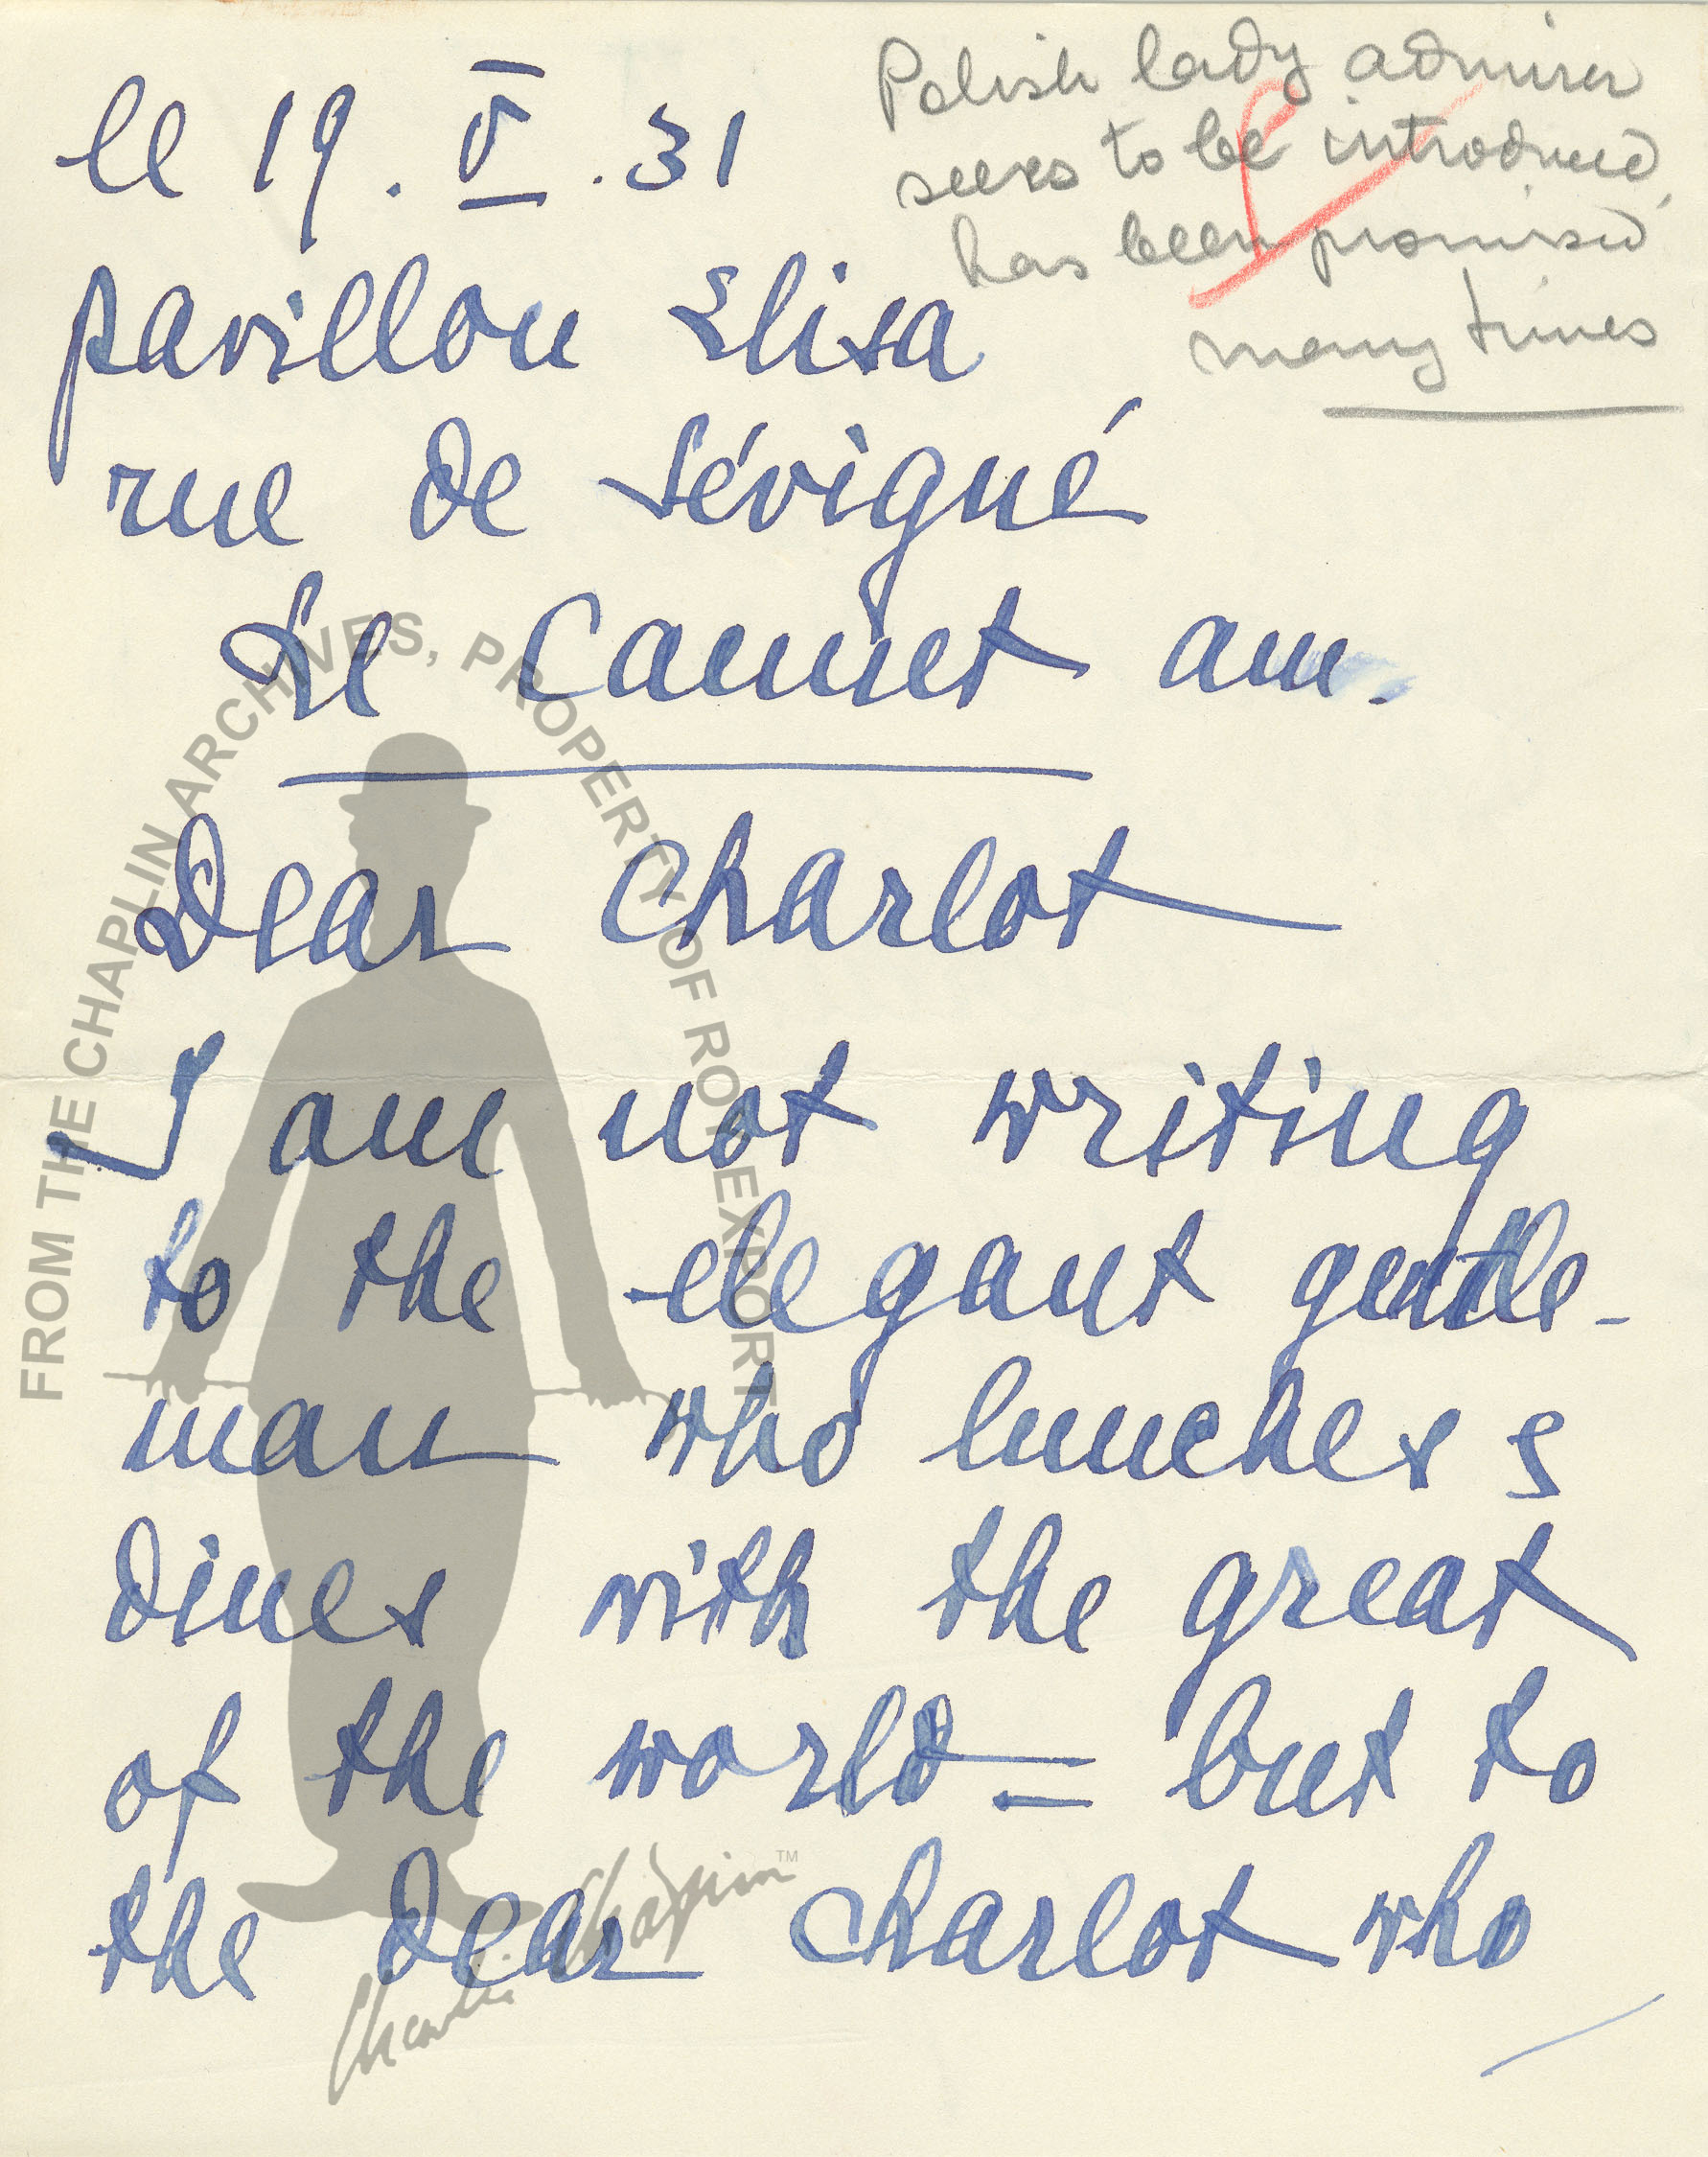 le 19. V. 31
Polish lady admirer
seeks to be introduced,
has been promised
many times
pavillon Elisa
rue de Sévigné
Le Cannet am.
Dear Charlot
I am not writing
to the elegant gentle-
man who lunches &
dines with the great
of the world = but to
the dear Charlot who
FROM THE CHAPLIN ARCHIVES, PROPERTY OF ROY EXPORT
Charlie Chaplin™